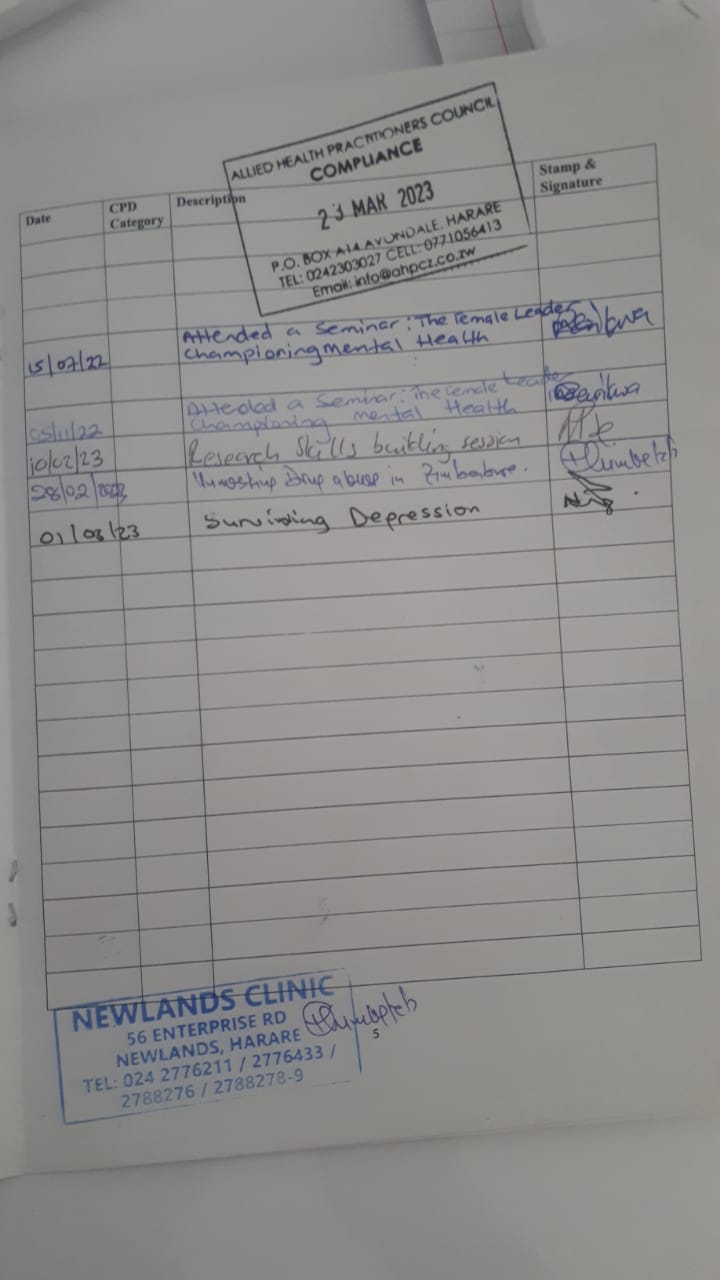 ALLIED HEALTH PRACTITIONERS COUNCIL
COMPLIANCE
23 MAR 2023
P.O. BOX A14 AVONDALE, HARARE
TEL: 0242303027 CELL: 0771056413
Email: info@ahpcz.co.zw
Date
CPD
Category
Description
Stamp &
Signature
15/07/22
Attended a Seminar: The Female Leader
Championing mental Health
Attended a Seminar: The Female Leader
Championing mental Health
10/02/23
Research Skills building session
28/02/2023
Drug abuse in Zimbabwe.
01/03/23
Surviving Depression
NEWLANDS CLINIC
56 ENTERPRISE RD
NEWLANDS, HARARE
TEL: 024 2776211 / 2776433 /
2788276 / 2788278-9
5